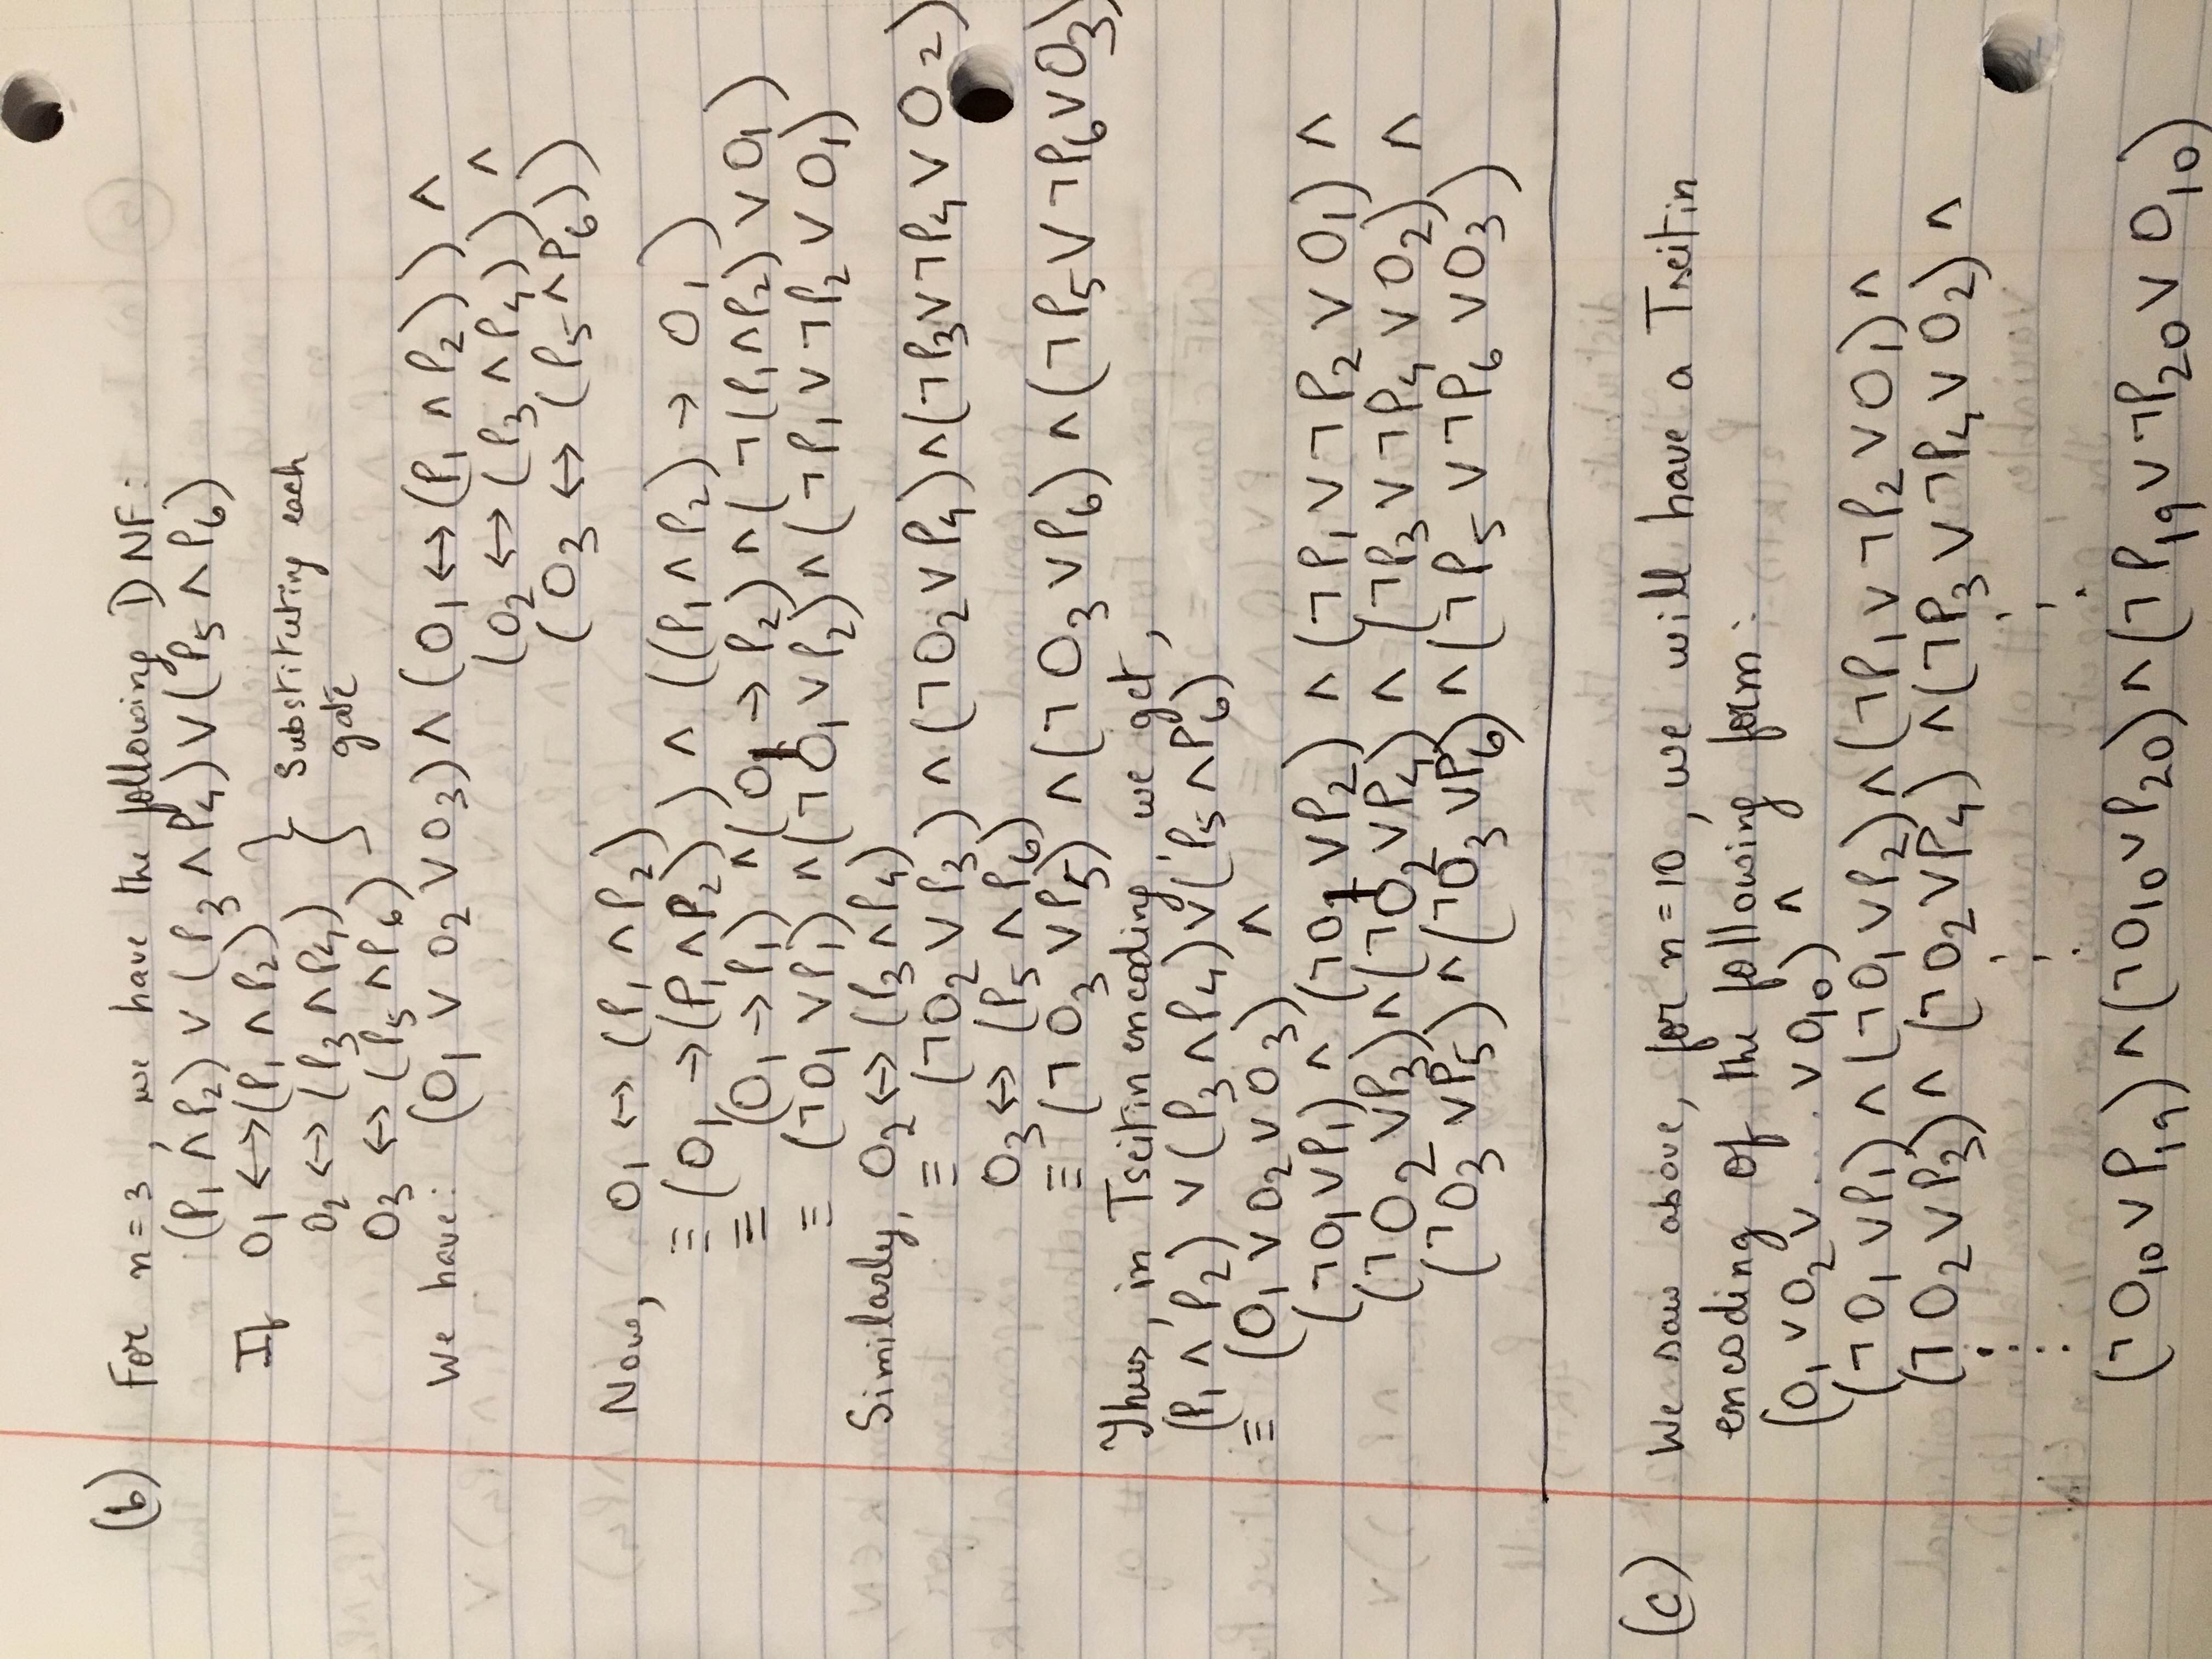 (b) For n = 3, we have the following DNF:
(P₁ ∧ P₂) ∨ (P₃ ∧ P₄) ∨ (P₅ ∧ P₆)
If O₁ ↔ (P₁ ∧ P₂)
O₂ ↔ (P₃ ∧ P₄)
O₃ ↔ (P₅ ∧ P₆)
} Substituting each
gate
We have: (O₁ ∨ O₂ ∨ O₃) ∧ (O₁ ↔ (P₁ ∧ P₂)) ∧
(O₂ ↔ (P₃ ∧ P₄)) ∧
(O₃ ↔ (P₅ ∧ P₆))
Now, O₁ ↔ (P₁ ∧ P₂)
≡ (O₁ → (P₁ ∧ P₂)) ∧ ((P₁ ∧ P₂) → O₁)
≡ (O₁ → P₁) ∧ (O₁ → P₂) ∧ (¬(P₁ ∧ P₂) ∨ O₁)
≡ (¬O₁ ∨ P₁) ∧ (¬O₁ ∨ P₂) ∧ (¬P₁ ∨ ¬P₂ ∨ O₁)
Similarly, O₂ ↔ (P₃ ∧ P₄)
≡ (¬O₂ ∨ P₃) ∧ (¬O₂ ∨ P₄) ∧ (¬P₃ ∨ ¬P₄ ∨ O₂)
O₃ ↔ (P₅ ∧ P₆)
≡ (¬O₃ ∨ P₅) ∧ (¬O₃ ∨ P₆) ∧ (¬P₅ ∨ ¬P₆ ∨ O₃)
Thus, in Tseitin encoding, we get,
(P₁ ∧ P₂) ∨ (P₃ ∧ P₄) ∨ (P₅ ∧ P₆)
≡ (O₁ ∨ O₂ ∨ O₃) ∧
(¬O₁ ∨ P₁) ∧ (¬O₁ ∨ P₂) ∧ (¬P₁ ∨ ¬P₂ ∨ O₁) ∧
(¬O₂ ∨ P₃) ∧ (¬O₂ ∨ P₄) ∧ (¬P₃ ∨ ¬P₄ ∨ O₂) ∧
(¬O₃ ∨ P₅) ∧ (¬O₃ ∨ P₆) ∧ (¬P₅ ∨ ¬P₆ ∨ O₃)
(c) We saw above, for n = 10, we will have a Tseitin
encoding of the following form:
(O₁ ∨ O₂ ∨ .... ∨ O₁₀) ∧
(¬O₁ ∨ P₁) ∧ (¬O₁ ∨ P₂) ∧ (¬P₁ ∨ ¬P₂ ∨ O₁) ∧
(¬O₂ ∨ P₃) ∧ (¬O₂ ∨ P₄) ∧ (¬P₃ ∨ ¬P₄ ∨ O₂) ∧
⋮ ⋮ ⋮
(¬O₁₀ ∨ P₁₉) ∧ (¬O₁₀ ∨ P₂₀) ∧ (¬P₁₉ ∨ ¬P₂₀ ∨ O₁₀)